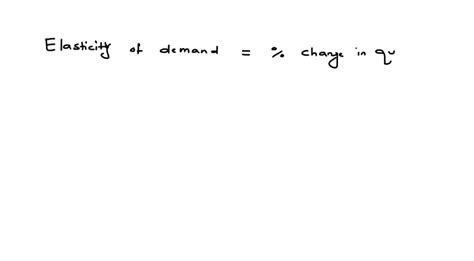 Elasticity of demand = % change in qu